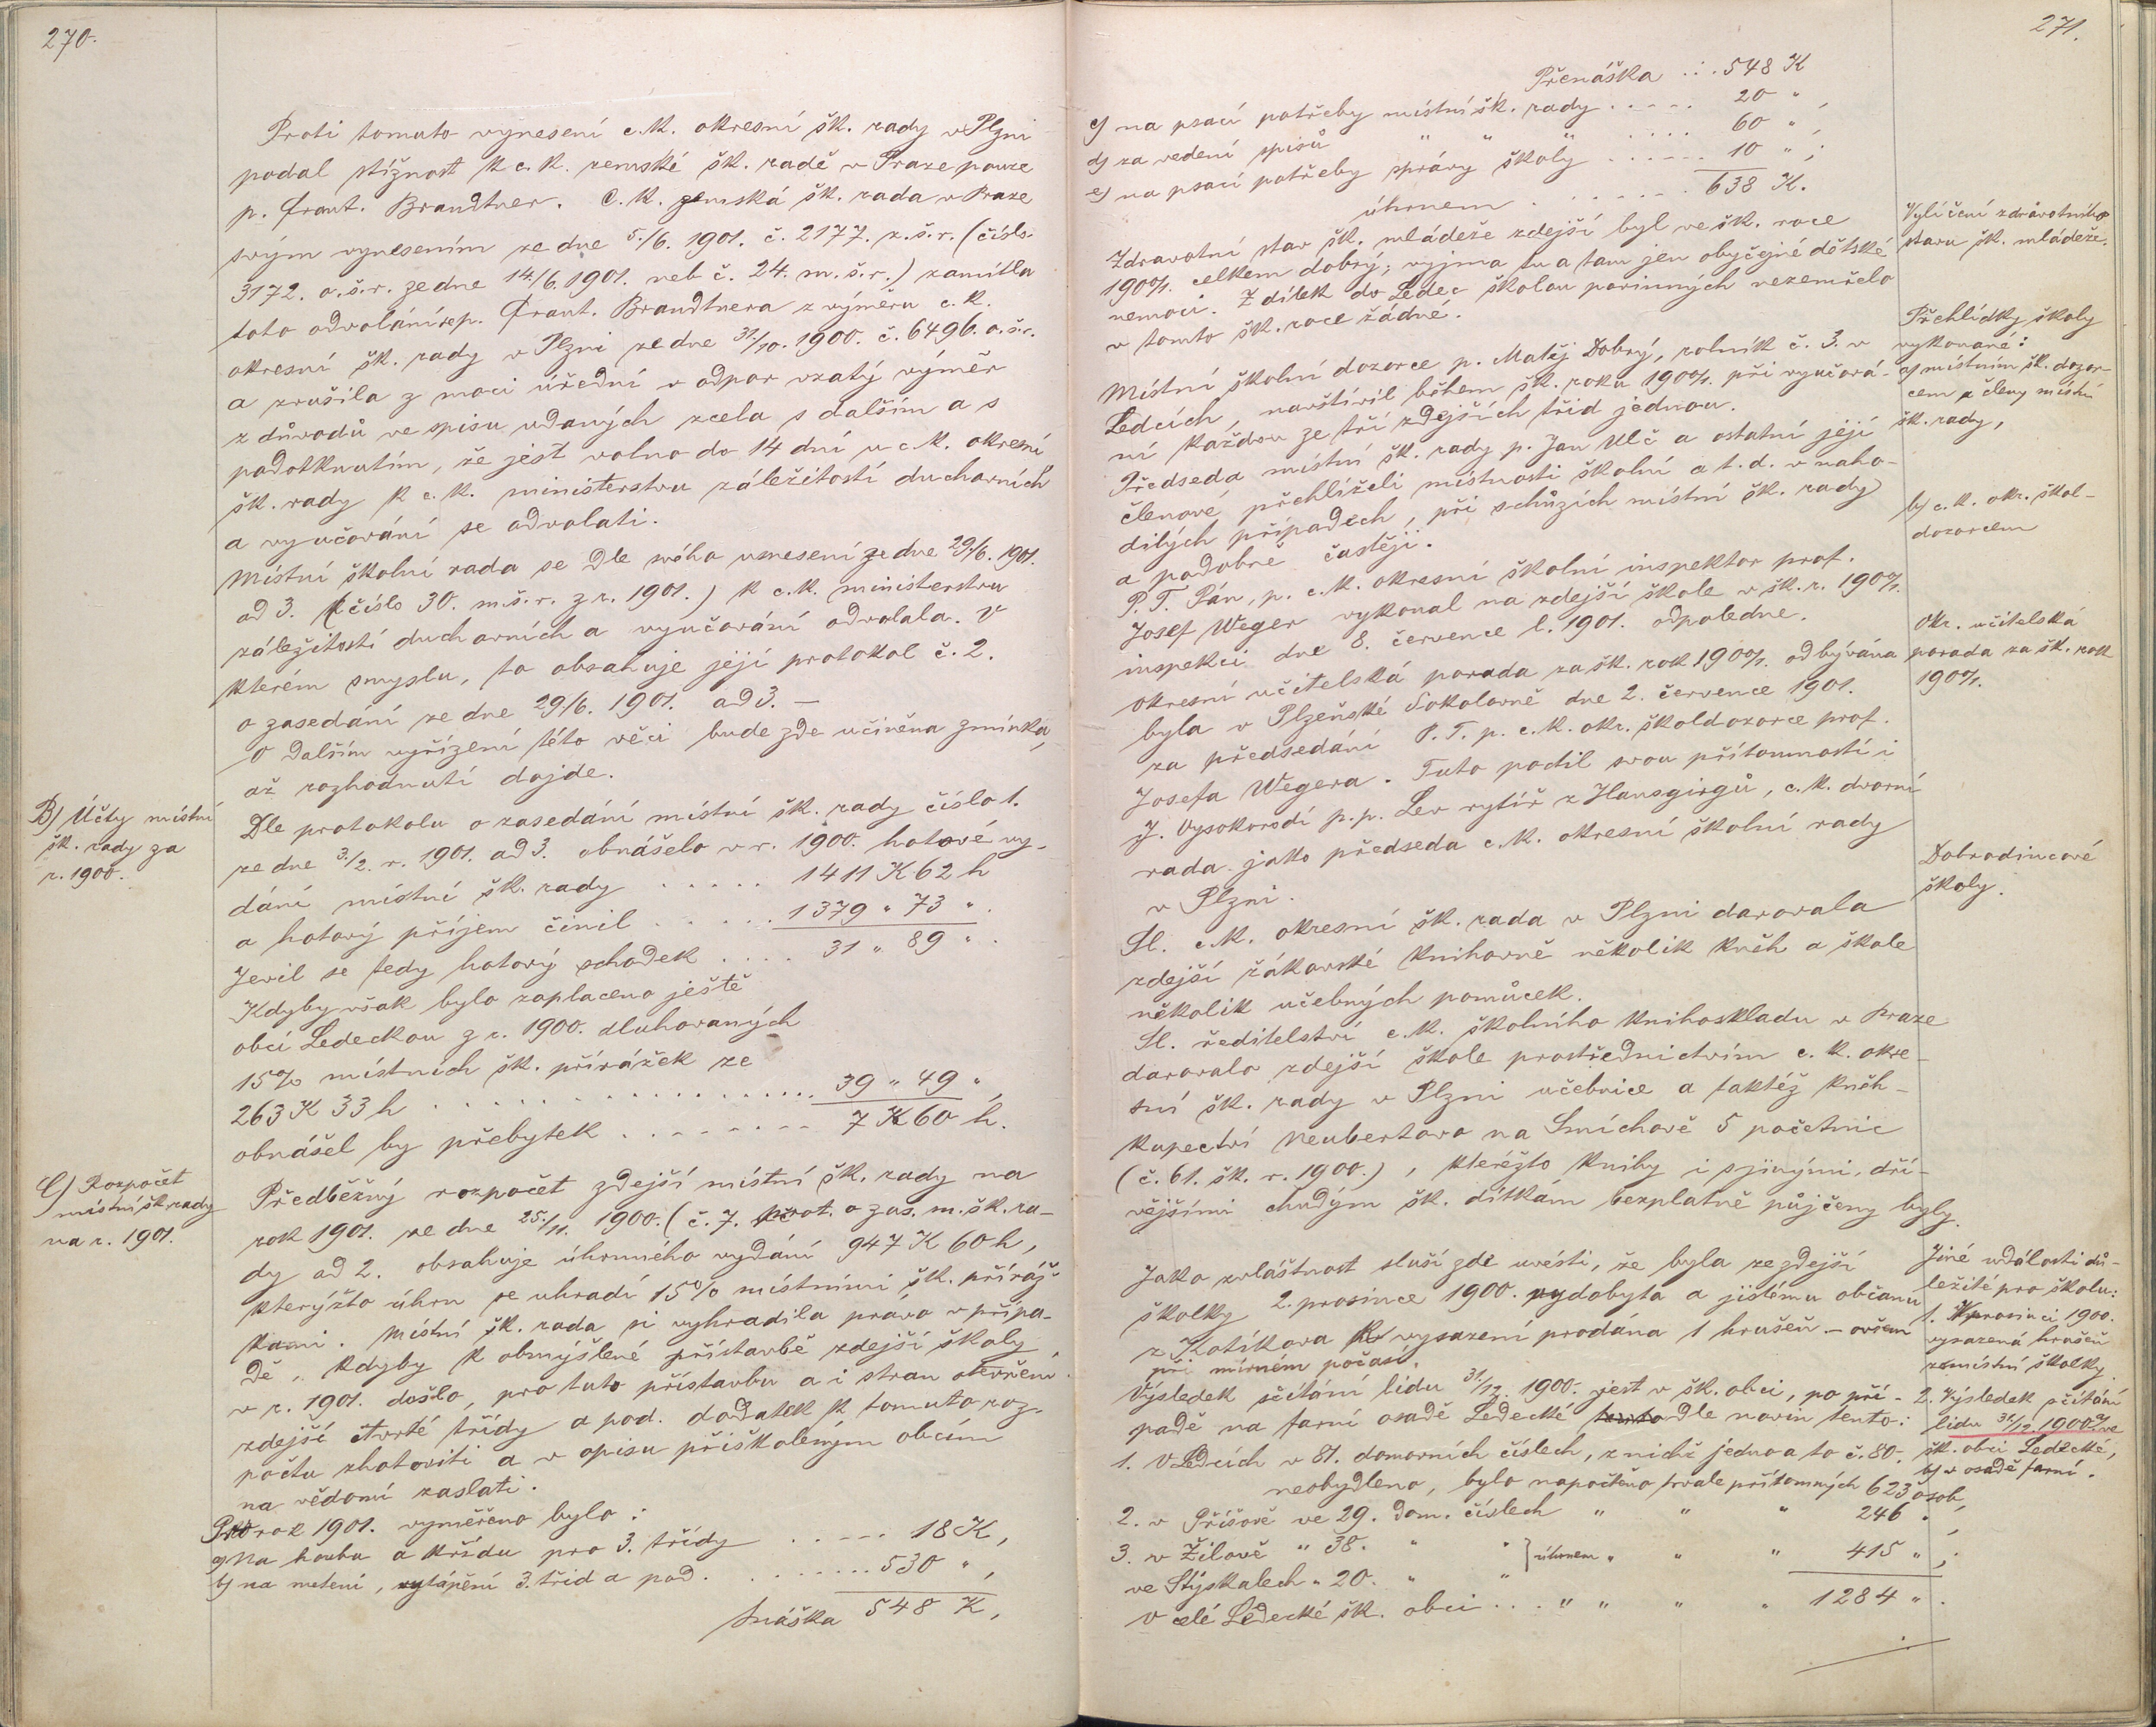 270.
Proti tomuto vynesení c.k. okresní šk. rady v Plzni
podal stížnost k c.k. zemské šk. radě v Praze pouze
p. Frant. Brandtner. C.k. zemská šk. rada v Praze
svým vynesením ze dne 5./6. 1901. č. 2177. z.š.r. (číslo
3172. o.š.r. ze dne 14./6. 1901. neb č. 24. m.š.r.) zamítla
toto odvolání se p. Frant. Brandtnera z výměru c.k.
okresní šk. rady v Plzni ze dne 31./10. 1900. č. 6496. o.š.r.
a zrušila z moci úřední v odpor vzatý výměr
z důvodů ve spisu udaných zcela s dalším a s
podotknutím, že jest volno do 14 dní u c.k. okresní
šk. rady k c.k. ministerstvu záležitostí duchovních
a vyučování se odvolati.
Místní školní rada se dle svého usnesení ze dne 29./6. 1901.
ad 3. (číslo 30. m.š.r. z r. 1901.) k c.k. ministerstvu
záležitostí duchovních a vyučování odvolala. V
kterém smyslu, to obsahuje její protokol č. 2.
o zasedání ze dne 29./6. 1901. ad 3. —
O dalším vyřízení této věci bude zde učiněna zmínka,
až rozhodnutí dojde.
B) Účty místní
šk. rady za
r. 1900.
Dle protokolu o zasedání místní šk. rady číslo 1.
ze dne 3./2. r. 1901. ad 3. obnášelo v r. 1900. hotové vy-
dání místní šk. rady ..... 1411 K 62 h
a hotový příjem činil ..... 1379 " 73 ".
Jevil se tedy hotový schodek .... 31 " 89 ".
Kdyby však bylo zaplaceno ještě
obcí Ledeckou z r. 1900. dluhovaných
15% místních šk. přirážek ze
263 K 33 h .................. 39 " 49 ",
obnášel by přebytek ........ 7 K 60 h.
C) Rozpočet
místní šk. rady
na r. 1901.
Předběžný rozpočet zdejší místní šk. rady na
rok 1901. ze dne 25./11. 1900. (č. 7. prot. o zas. m. šk. ra-
dy ad 2. obsahuje úhrnného vydání 947 K 60 h,
kterýžto úhrn se uhradí 15% místními šk. přiráž-
kami. Místní šk. rada si vyhradila právo v přípa-
dě, kdyby k obmýšlené přístavbě zdejší školy
v r. 1901. došlo, pro tuto přístavbu a i stran otevření
zdejší čtvrté třídy a pod. dodatek k tomuto roz-
počtu zhotoviti a v opisu přiškoleným obcím
na vědomí zaslati.
Pro rok 1901. vyměřeno bylo:
a) Na houbu a křídu pro 3. třídy ..... 18 K,
b) na metení, vytápění 3. tříd a pod. ........ 530 ",
Snáška 548 K,
271.
Přenáška ... 548 K
c) na psací potřeby místní šk. rady ..... 20 ",
d) za vedení spisů " " " .... 60 ",
e) na psací potřeby správy školy ...... 10 ";
úhrnem ...... 638 K.
Vylíčení zdravotního
stavu šk. mládeže.
Zdravotní stav šk. mládeže zdejší byl ve šk. roce
1900/1. celkem dobrý; vyjma tu a tam jen obyčejné dětské
nemoci. Z dítek do Ledec školou povinných nezemřelo
v tomto šk. roce žádné.
Přehlídky školy
vykonané:
a) místním šk. dozor-
cem a členy místní
šk. rady,
Místní školní dozorce p. Matěj Dobrý, rolník č. 3. v
Ledcích, navštívil během šk. roku 1900/1. při vyučová-
ní každou ze tří zdejších tříd jednou.
Předseda místní šk. rady p. Jan Ulč a ostatní její
členové přehlíželi místnosti školní a t. d. v naho-
dilých případech, při schůzích místní šk. rady
a podobně častěji.
b) c.k. okr. škol-
dozorcem
P. T. Pán, p. c.k. okresní školní inspektor prof.
Josef Weger vykonal na zdejší škole v šk. r. 1900/1.
inspekci dne 8. července l. 1901. odpoledne.
Okr. učitelská
porada za šk. rok
1900/1.
Okresní učitelská porada za šk. rok 1900/1. odbývána
byla v Plzeňské Sokolovně dne 2. července 1901.
za předsedání P. T. p. c.k. okr. školdozorce prof.
Josefa Wegera. Tuto poctil svou přítomností i
J. Vysokorodí p. p. Lev rytíř z Hansgirgů, c.k. dvorní
rada jako předseda c.k. okresní školní rady
v Plzni.
Dobrodincové
školy.
Sl. c.k. okresní šk. rada v Plzni darovala
zdejší žákovské knihovně několik kněh a škole
několik učebných pomůcek.
Sl. ředitelství c.k. školního knihoskladu v Praze
darovalo zdejší škole prostřednictvím c.k. okre-
sní šk. rady v Plzni učebnice a taktéž kněh-
kupectví Neubertovo na Smíchově 5 početnic
(č. 61. šk. r. 1900.), kteréžto knihy i s jinými, dří-
vějšími chudým šk. dítkám bezplatně půjčeny byly.
Jiné události dů-
ležité pro školu:
1. V prosinci 1900.
vysazená hrušeň
z místní školky.
Jako zvláštnost sluší zde uvésti, že byla ze zdejší
školky 2. prosince 1900. vydobyta a jistému občanu
z Kotíkova k vysazení prodána 1 hrušeň – ovšem
při mírném počasí.
2. Výsledek sčítání
lidu 31./12. 1900. ve
šk. obci Ledecké,
b) v osadě farní.
Výsledek sčítání lidu 31./12. 1900. jest v šk. obci, po pří-
padě na farní osadě Ledecké tento dle novin tento:
1. V Ledcích v 81. domovních číslech, z nichž jedno a to č. 80.
neobydleno, bylo napočteno trvale přítomných 623 osob,
2. v Příšově ve 29. dom. číslech " " " 246 ",
3. v Žilově " 38. " " } úhrnem " " " 415 ";
ve Stýskalech " 20. " "
V celé Ledecké šk. obci ... " " " " 1284 ".